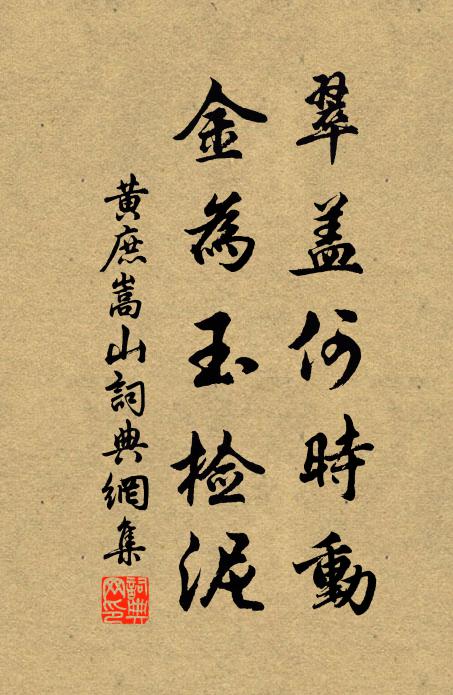 翠盖何時動
金為玉檢泥
黃庶嵩山詞典網集
詞典網印